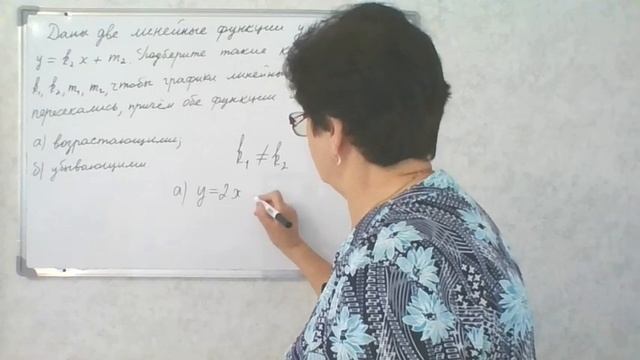 Даны две линейные функции y
y = k₂x + m₂. Подберите такие к
k₁, k₂, m₁, m₂, чтобы графики линейны
пересекались, причём обе функции
а) возрастающими;
б) убывающими
k₁ ≠ k₂
а) y = 2x